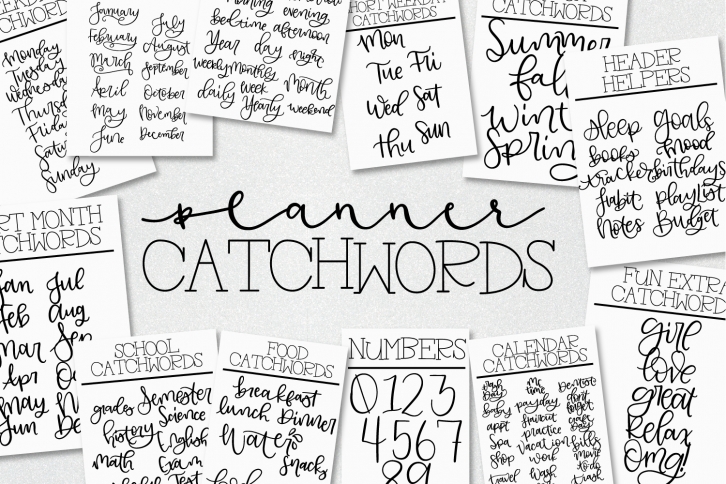 Monday
Tuesday
Wednesday
Thursd
Frida
Satu
Sunday
January
July
February
August
March
September
April
October
May
November
June
December
evening
bedtime afternoon
Year day night
weekly monthly
Month
daily week
Yearly
weekend
SHORT WEEKDAY
CATCHWORDS
Mon
Tue Fri
Wed Sat
Thu Sun
Summer
fal
Wint
Sprin
HEADER
HELPERS
Sleep Goals
books mood
tracker birthdays
habit playlist
Notes Budget
planner
CATCHWORDS
RT MONTH
TCHWORDS
Jan Jul
Feb Aug
Mar Sep
Apr O
May N
Jun De
SCHOOL
CATCHWORDS
grades Semester
history Science
English
math Exam
Test
FOOD
CATCHWORDS
breakfast
lunch Dinner
Water
Snacks
food
NUMBERS
0123
4567
89
CALENDAR
CATCHWORDS
wash me Dentist
day time don't
baby payday forget
appt haircut
spa practice
vacation bills
shop work movie
to do
travel wash trash
FUN EXTRA
CATCHWORD
girl
love
great
relax
OMG!